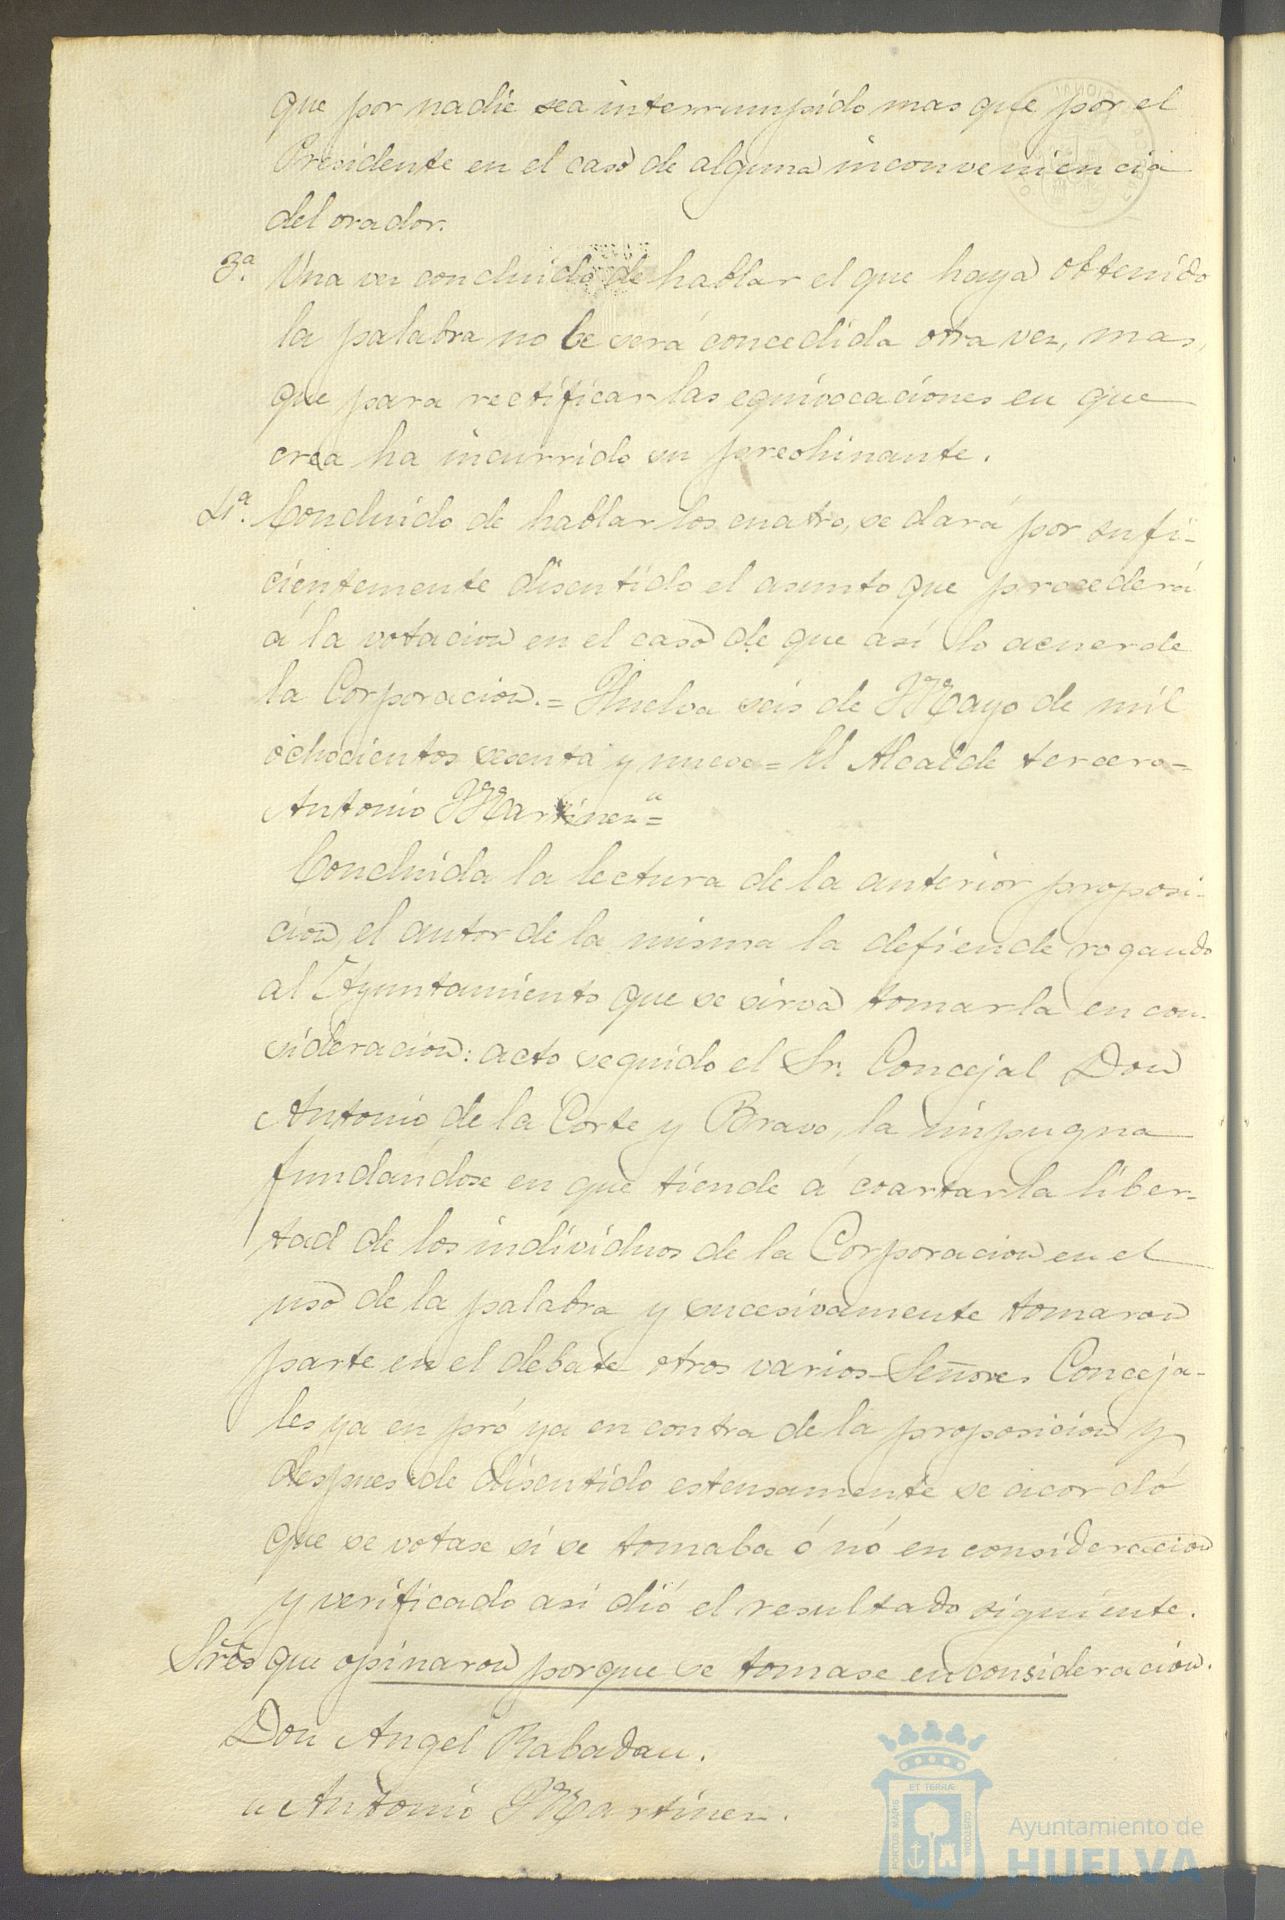 que por nadie sea interrumpido mas que por el
Presidente en el caso de alguna inconveniencia
del orador.
3ª. Una vez concluido de hablar el que haya obtenido
la palabra no le será concedida otra vez, mas,
que para rectificar las equivocaciones en que
crea ha incurrido un preohinante.
4ª. Concluido de hablar los cuatro, se dará por sufi-
cientemente discutido el asunto que procederá
á la votacion en el caso de que así lo acuerde
la Corporacion.= Huelva seis de Mayo de mil
ochocientos sesenta y nueve= El Alcalde tercero=
Antonio Martinez="
Concluida la lectura de la anterior proposi-
cion, el autor de la misma la defiende rogando
al Ayuntamiento que se sirva tomarla en con-
sideracion: acto seguido el Sr. Concejal Don
Antonio de la Corte y Bravo, la impugna
fundándose en que tiende á coartar la liber-
tad de los individuos de la Corporacion en el
uso de la palabra y sucesivamente tomaron
parte en el debate otros varios Señores Conceja-
les ya en pró ya en contra de la proposicion y
despues de discutido estensamente se acordó
que se votase si se tomaba ó nó en consideracion
y verificado así dió el resultado siguiente.
Sres que opinaron porque se tomase en consideracion.
Don Angel Rabadan.
" Antonio Martinez.
PORTUS MARIS ET TERRÆ CUSTODIA
Ayuntamiento de
HUELVA